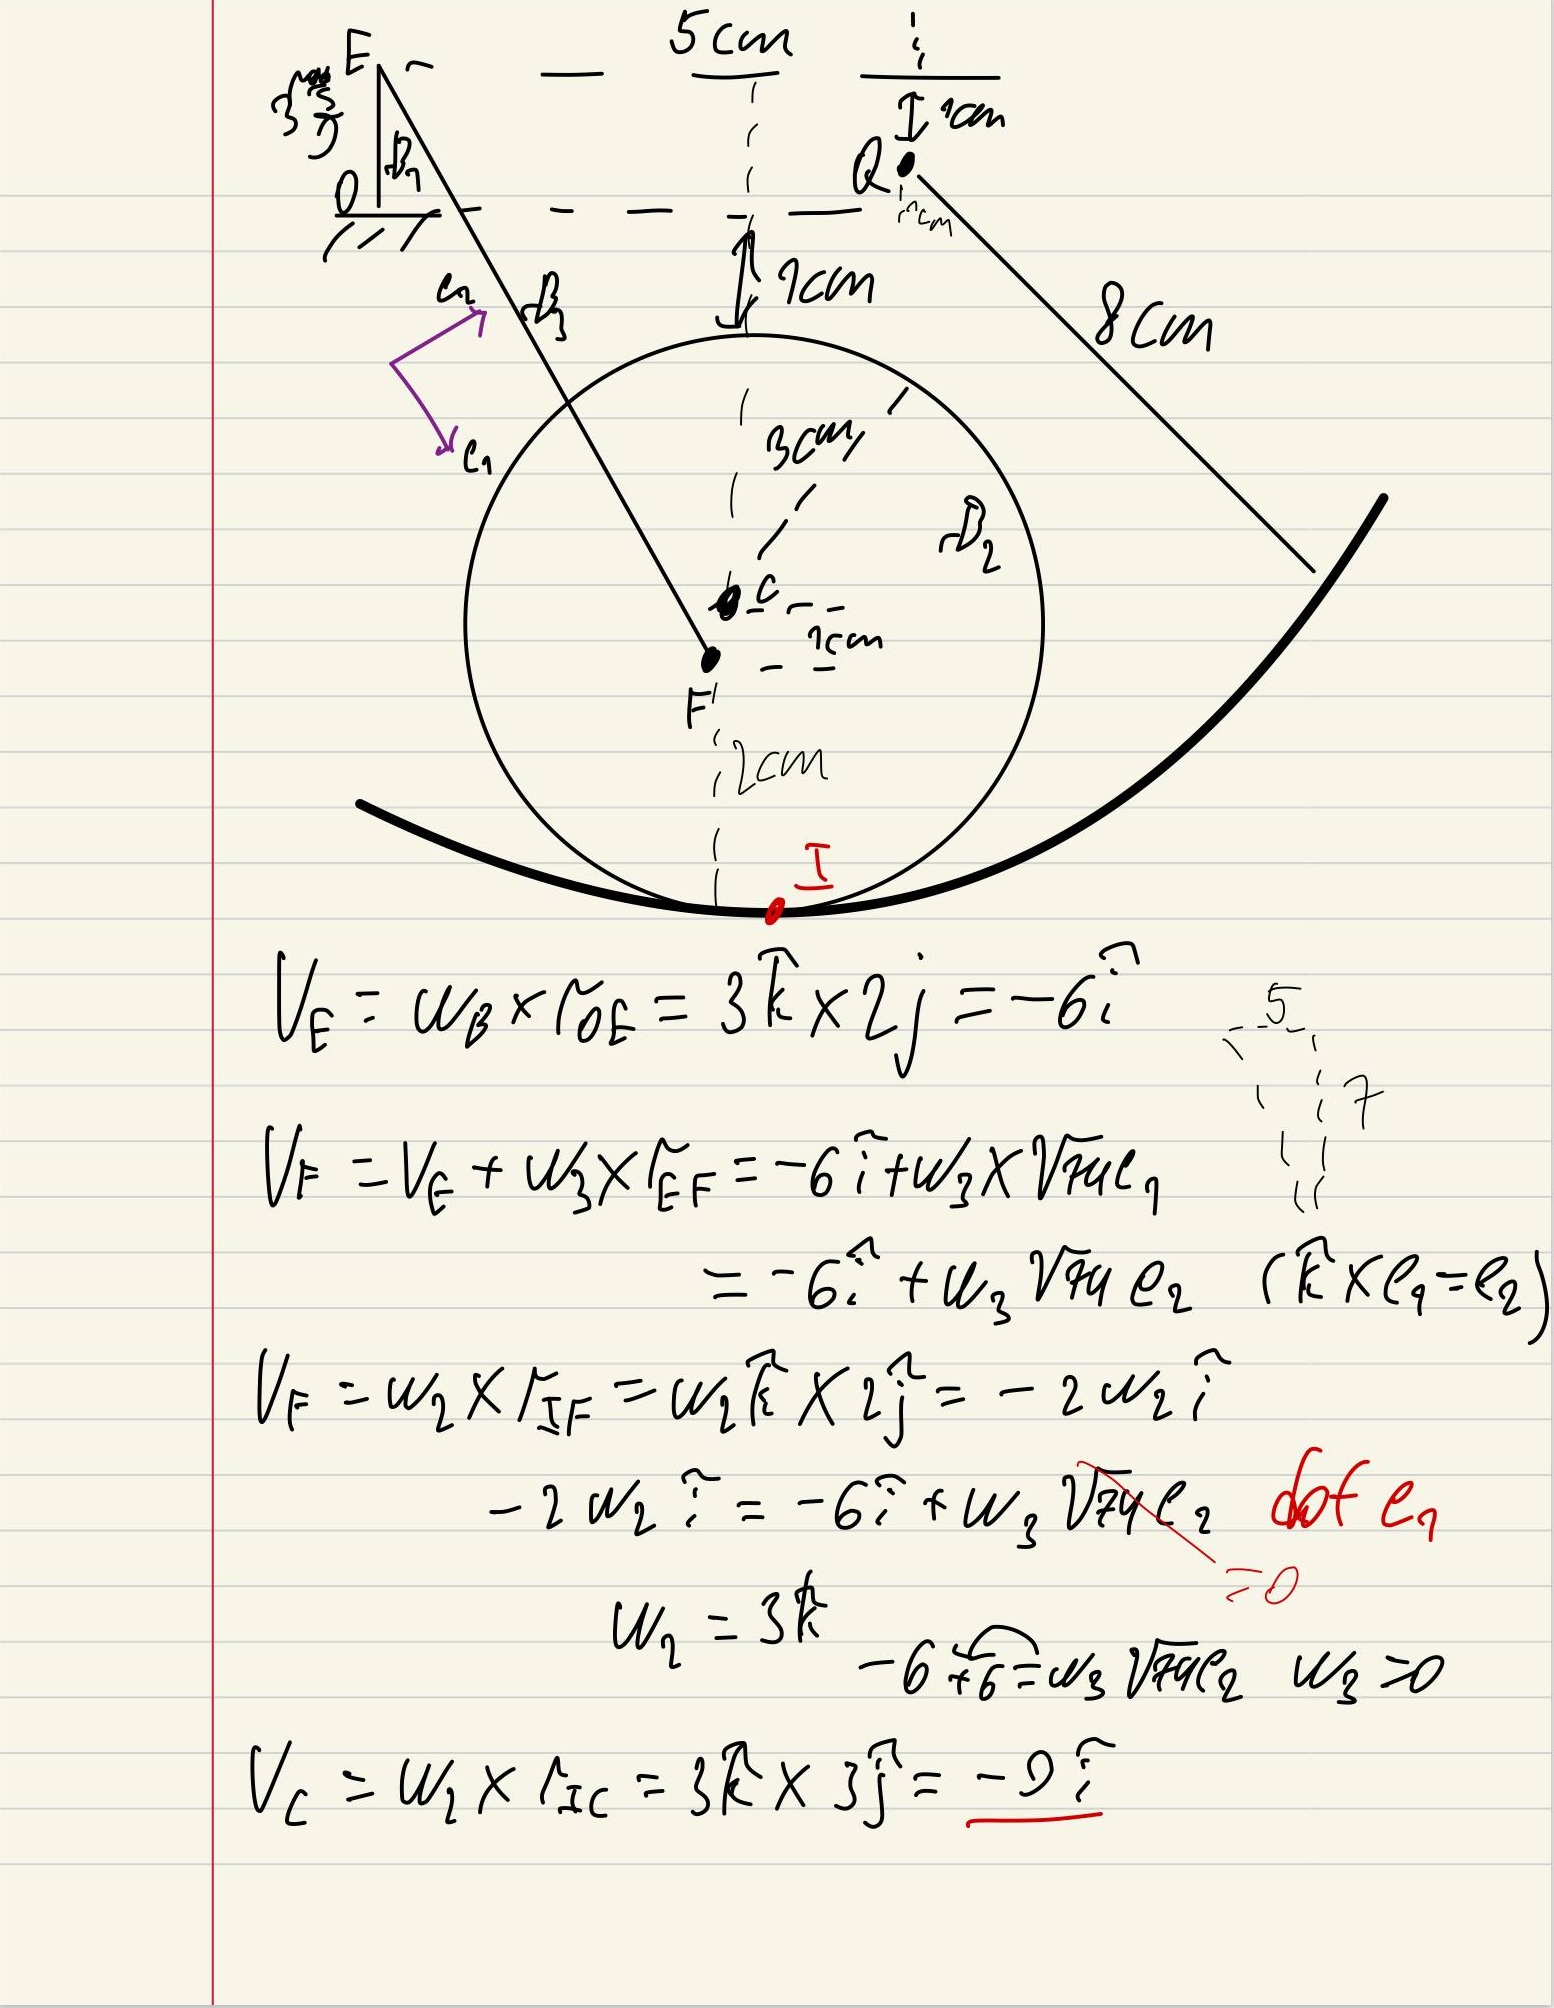 E
5cm
1cm
B₁
O
Q
1cm
e₂
B₃
1cm
8cm
e₁
3cm
B₂
C
1cm
F
2cm
I
V_E = ω_B × r_OE = 3k̂ × 2j = -6î
5
7
V_F = V_E + ω₃ × r_EF = -6î + ω₃ × √74 e₁
= -6î + ω₃ √74 e₂ (k̂ × e₁ = e₂)
V_F = ω₂ × r_IF = ω₂ k̂ × 2ĵ = -2ω₂ î
-2ω₂ î = -6î + ω₃ √74 e₂ dot e₁
=0
ω₂ = 3k̂
-6 +6 = ω₃ √74 e₂ ω₃ = 0
V_C = ω₂ × r_IC = 3k̂ × 3ĵ = -9î